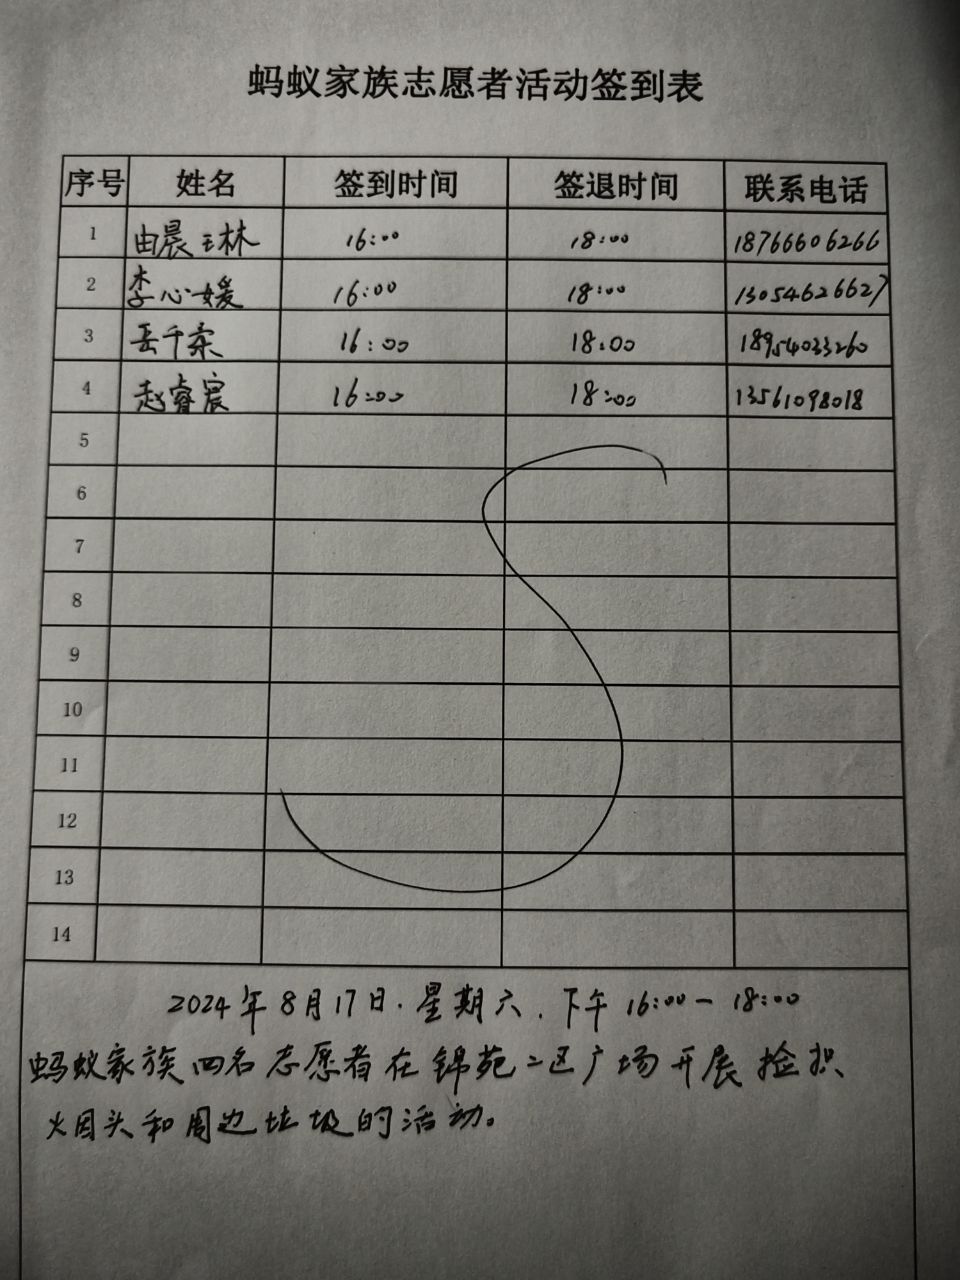 蚂蚁家族志愿者活动签到表
序号 姓名 签到时间 签退时间 联系电话
1 由晨玉林 16:00 18:00 18766606266
2 李心媛 16:00 18:00 13054626627
3 岳千柔 16:00 18:00 18954033260
4 赵睿宸 16:00 18:00 13561098018
5
6
7
8
9
10
11
12
13
14
2024年8月17日.星期六.下午16:00-18:00
蚂蚁家族四名志愿者在锦苑二区广场开展捡拾、
烟头和周边垃圾的活动。